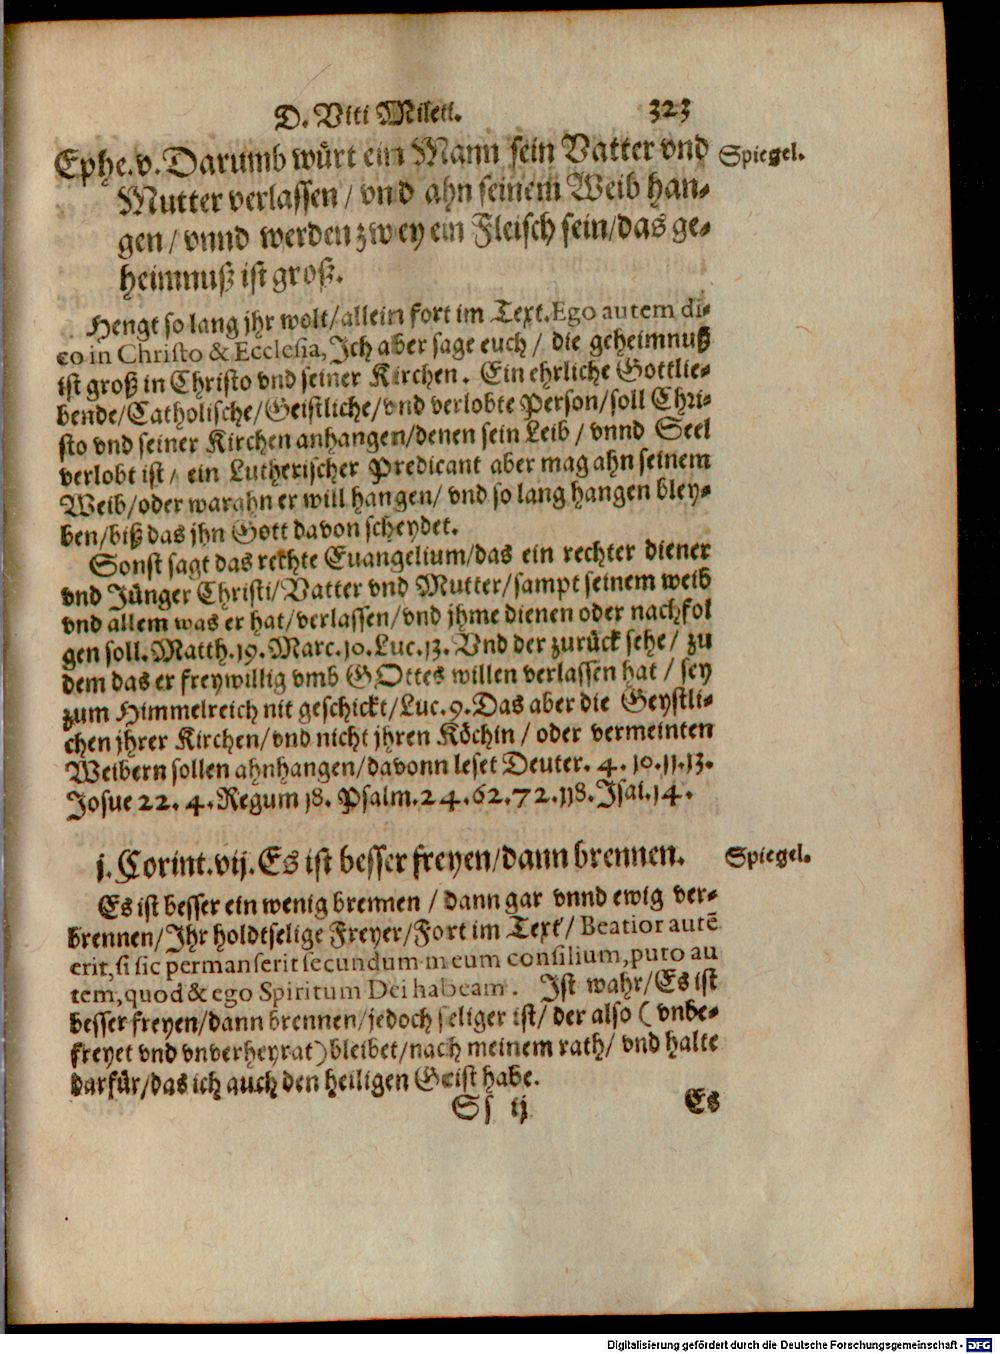 D. Viti Mileti. 323
Ephe. v. Darumb würt ein Mann sein Vatter vnd Spiegel.
Mutter verlassen / vnd ahn seinem Weib han-
gen / vnnd werden zwey ein Fleisch sein / das ge-
heimnuß ist groß.
Hengt so lang jhr wolt / allein fort im Text. Ego autem di-
co in Christo & Ecclesia, Ich aber sage euch / die geheimnuß
ist groß in Christo vnd seiner Kirchen. Ein ehrliche Gottlie-
bende / Catholische / Geistliche / vnd verlobte Person / soll Chri-
sto vnd seiner Kirchen anhangen / denen sein Leib / vnnd Seel
verlobt ist / ein Lutherischer Predicant aber mag ahn seinem
Weib / oder warahn er will hangen / vnd so lang hangen bley-
ben / biß das jhn Gott davon scheydet.
Sonst sagt das rechte Euangelium / das ein rechter diener
vnd Jünger Christi / Vatter vnd Mutter / sampt seinem weib
vnd allem was er hat / verlassen / vnd jhme dienen oder nachfol
gen soll. Matth. 19. Marc. 10. Luc. 13. Vnd der zurück sehe / zu
dem das er freywillig vmb GOttes willen verlassen hat / sey
zum Himmelreich nit geschickt / Luc. 9. Das aber die Geystli-
chen jhrer Kirchen / vnd nicht jhren Köchin / oder vermeinten
Weibern sollen ahnhangen / davonn leset Deuter. 4. 10. 11. 13.
Josue 22. 4. Regum 18. Psalm. 24. 62. 72. 118. Isai. 14.
j. Corint. vij. Es ist besser freyen / dann brennen. Spiegel.
Es ist besser ein wenig brennen / dann gar vnnd ewig ver-
brennen / Ihr holdtselige Freyer / Fort im Text / Beatior autē
erit, si sic permanserit secundum meum consilium, puto au
tem, quod & ego Spiritum Dei habeam. Ist wahr / Es ist
besser freyen / dann brennen / jedoch seliger ist / der also ( vnbe-
freyet vnd vnverheyrat) bleibet / nach meinem rath / vnd halte
darfür / das ich auch den heiligen Geist habe.
Ss ij Es
Digitalisierung gefördert durch die Deutsche Forschungsgemeinschaft - DFG